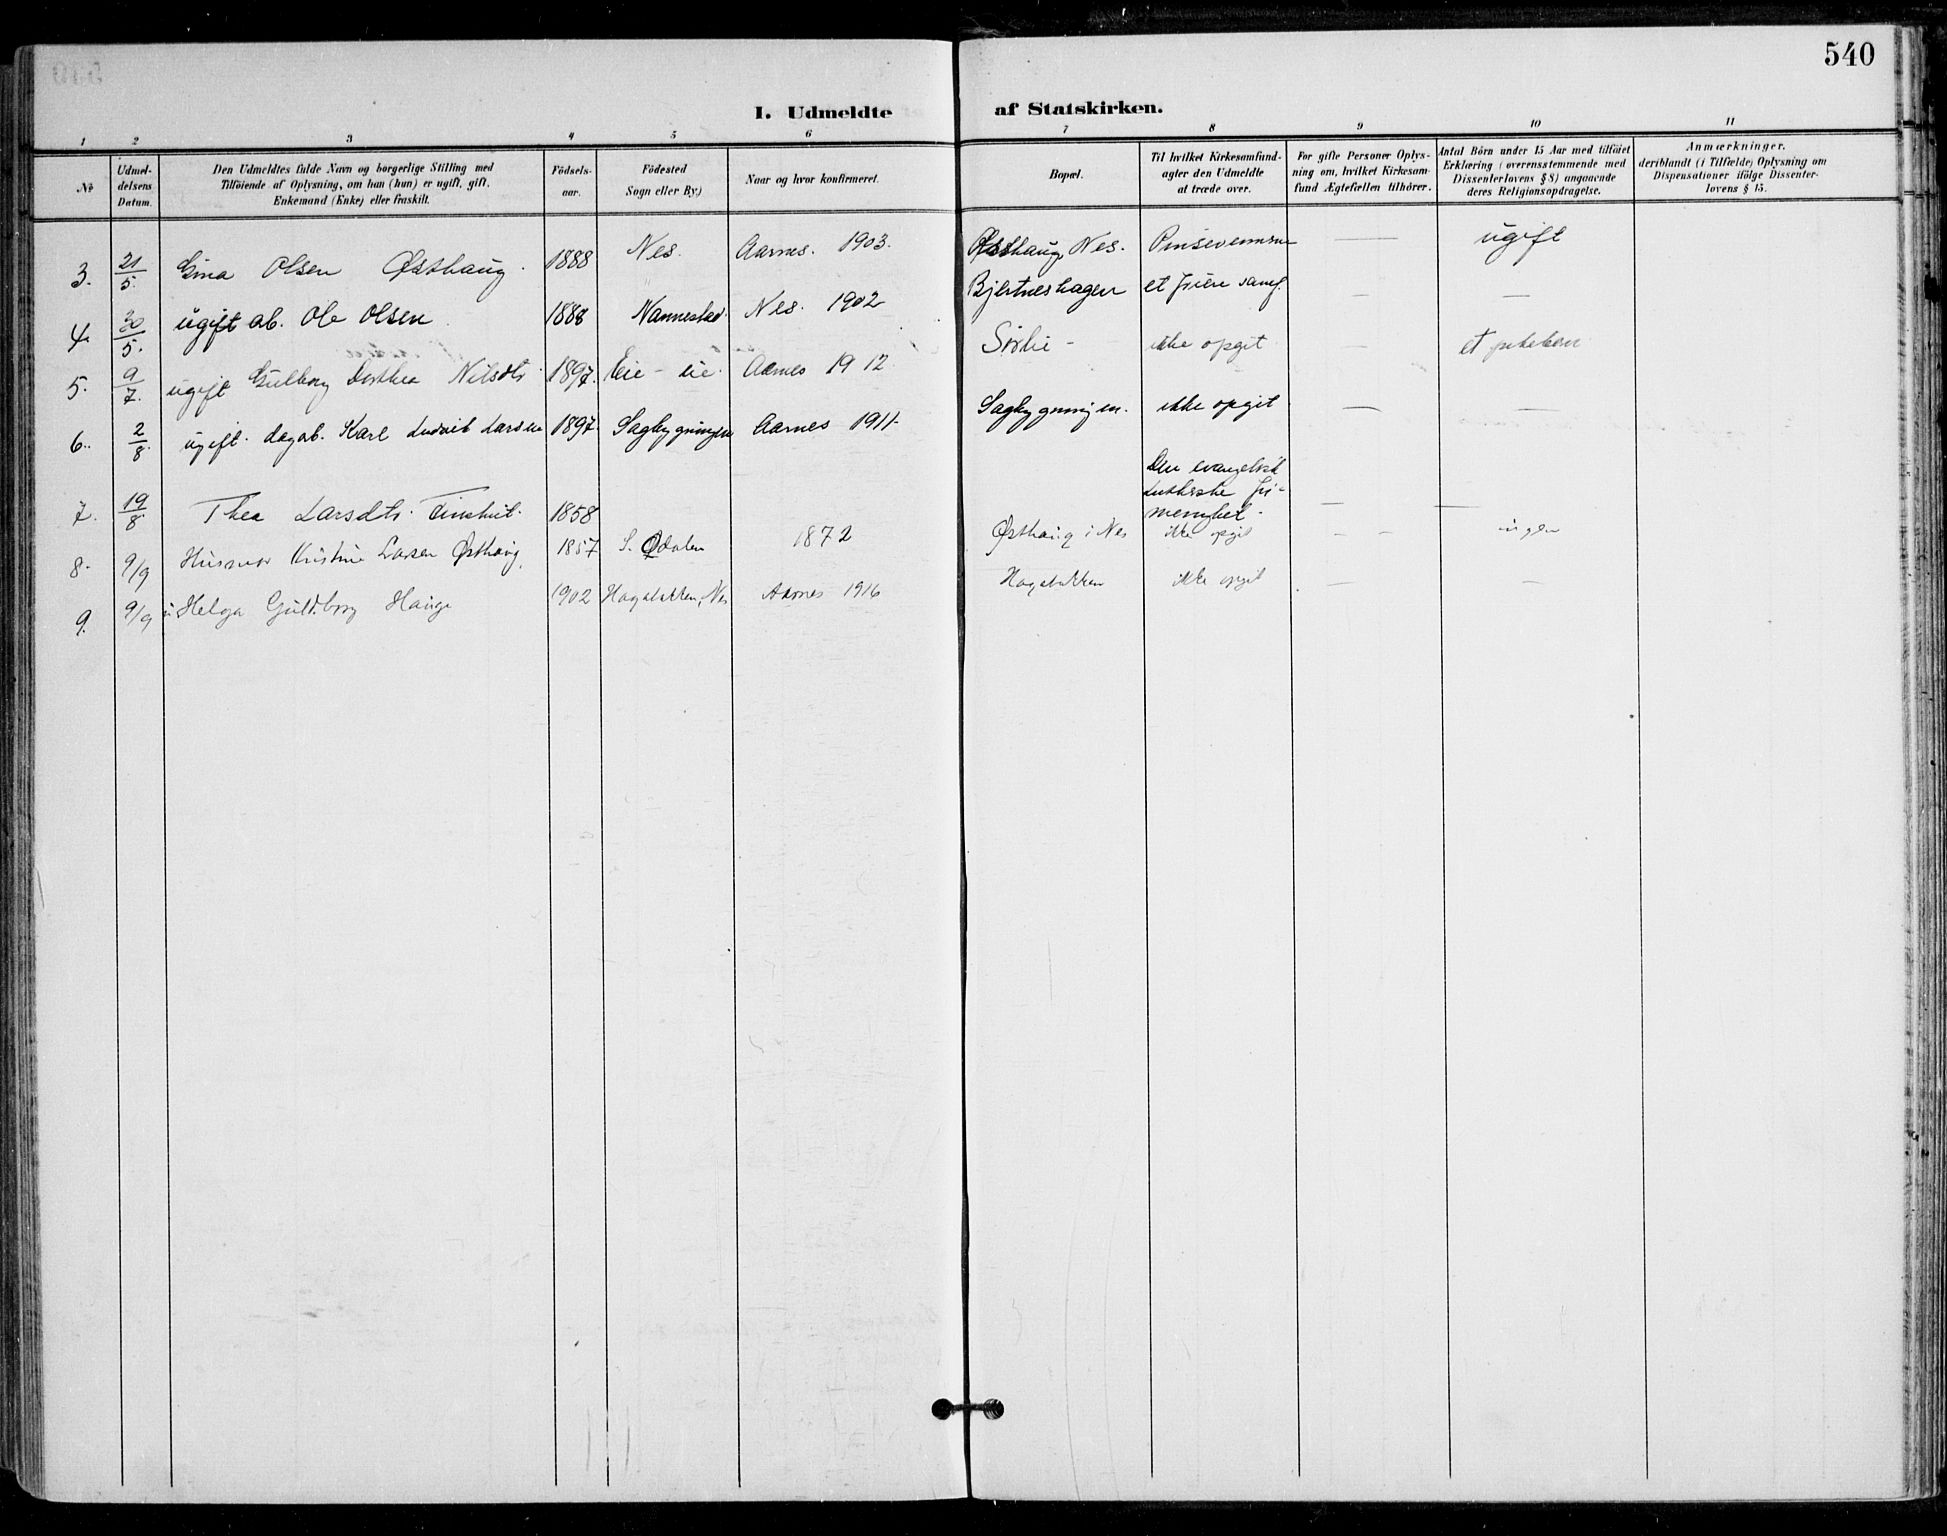 540
I. Udmeldte af Statskirken.
1 2 3 4 5 6 7 8 9 10 11
No
Udmel-
delsens
Datum.
Den Udmeldtes fulde Navn og borgerlige Stilling med
Tilföiende af Oplysning, om han (hun) er ugift, gift,
Enkemand (Enke) eller fraskilt.
Födsels-
aar.
Födested
Sogn eller By.)
Naar og hvor konfirmeret.
Bopæl.
Til hvilket Kirkesamfund-
agter den Udmeldte
at træde over.
For gifte Personer Oplys-
ning om, hvilket Kirkesam-
fund Ægtefællen tilhörer.
Antal Börn under 15 Aar med tilföiet
Erklæring (overensstemmende med
Dissenterlovens § 8) angaaende
deres Religionsopdragelse.
Anmærkninger,
deriblandt (i Tilfælde) Oplysning om
Dispensationer ifölge Dissenter-
lovens § 15.
3. 21/5. Gina Olsen Østhaug. 1888 Nes. Aarnes. 1903. Østhaug, Nes. Pinsevennerne — ugift
4. 30/5. ugift ab. Ole Olsen 1888 Nannestad. Nes. 1902 Bjertneshagen et friere samf. — —
5. 9/7. ugift Gulborg Dorthea Nilsdtr. 1897. Eie - eie. Aarnes 1912 Sörlie - ikke opgit — et pikebarn
6. 2/8. ugift. dagab. Karl Ludvik Larsen 1897. Sagbygningen Aarnes 1911. Sagbygningen. ikke opgit — —
7. 19/8. Thea Larsdtr. 1858 Den evangelisk
Lutherske fri-
menighet. — —
8. 9/9 Husmor Kristine Larsen Østhaug, 1857 S. Odalen 1872 Østhaug i Nes ikke opgit - - ingen
9. 9/9 u. Helga Guldborg Hauge 1902 Hagabakken, Nes Aarnes 1916 Hagabakken ikke opgit — —